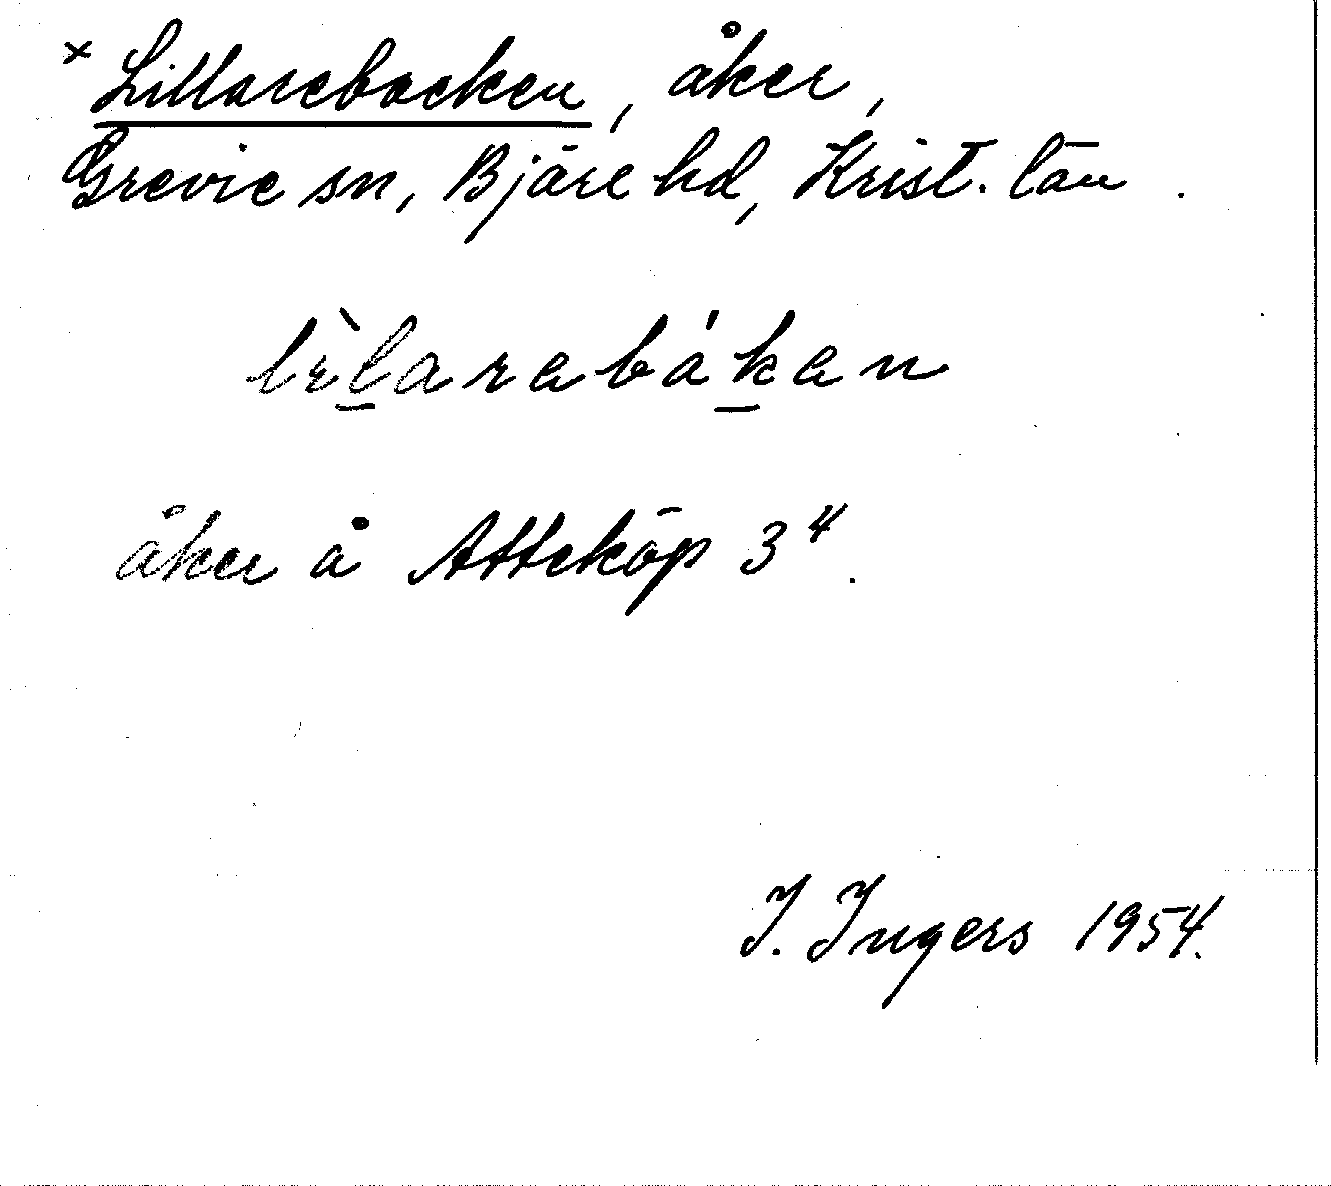 × Lillarebacken, åker,
Grevie sn, Bjäre hd, Krist. län.
lìl̲arabák̲an
åker å Atteköp 3⁴.
I. Ingers 1954.